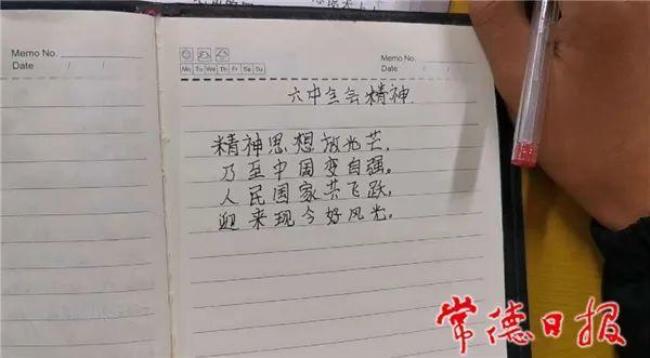 Memo No.
Date / /
Mo Tu We Th Fr Sa Su
Memo No.
Date / /
六中全会精神
精神思想放光芒,
乃至中国变自强。
人民国家共飞跃,
迎来现今好风光。
常德日报